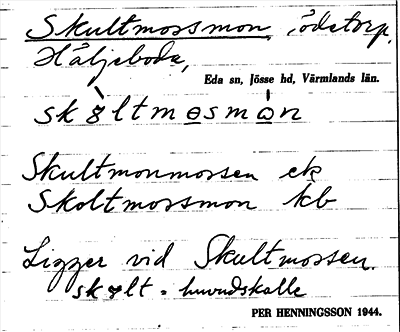 Skultmossmon, ödetorp.
Häljeboda,
Eda sn, Jösse hd, Värmlands län.
Skultmonmossen ek
Skoltmossmon kb
Ligger vid Skultmossen.
= huvudskalle
PER HENNINGSSON 1944.